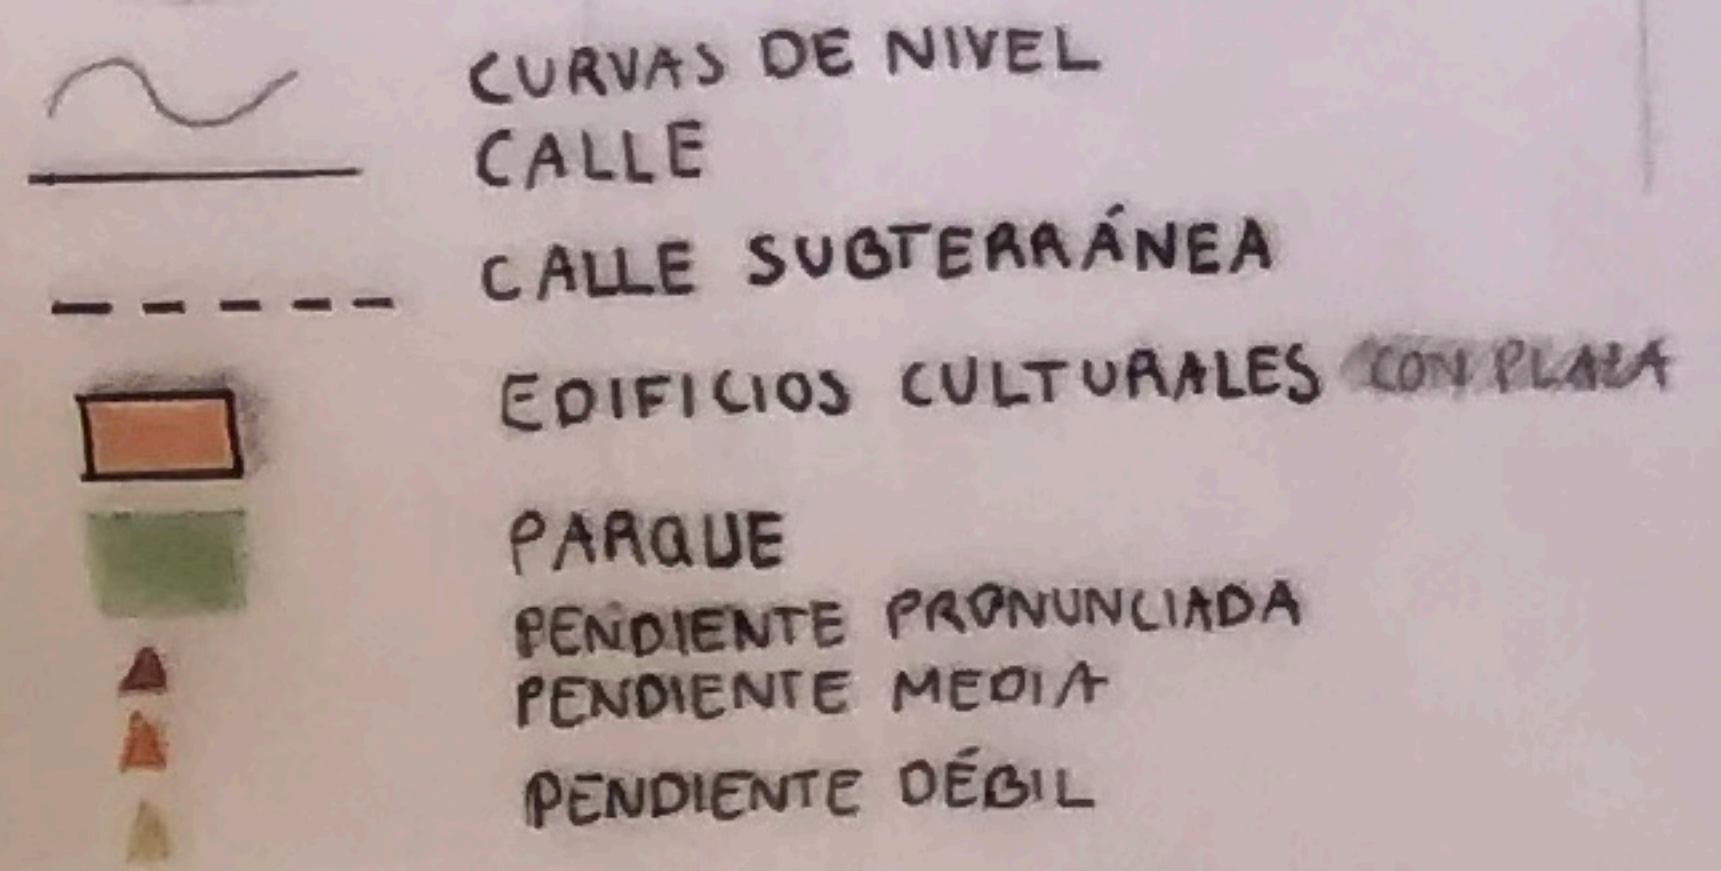 CURVAS DE NIVEL
CALLE
CALLE SUBTERRÁNEA
EDIFICIOS CULTURALES CON PLAZA
PARQUE
PENDIENTE PRONUNCIADA
PENDIENTE MEDIA
PENDIENTE DÉBIL